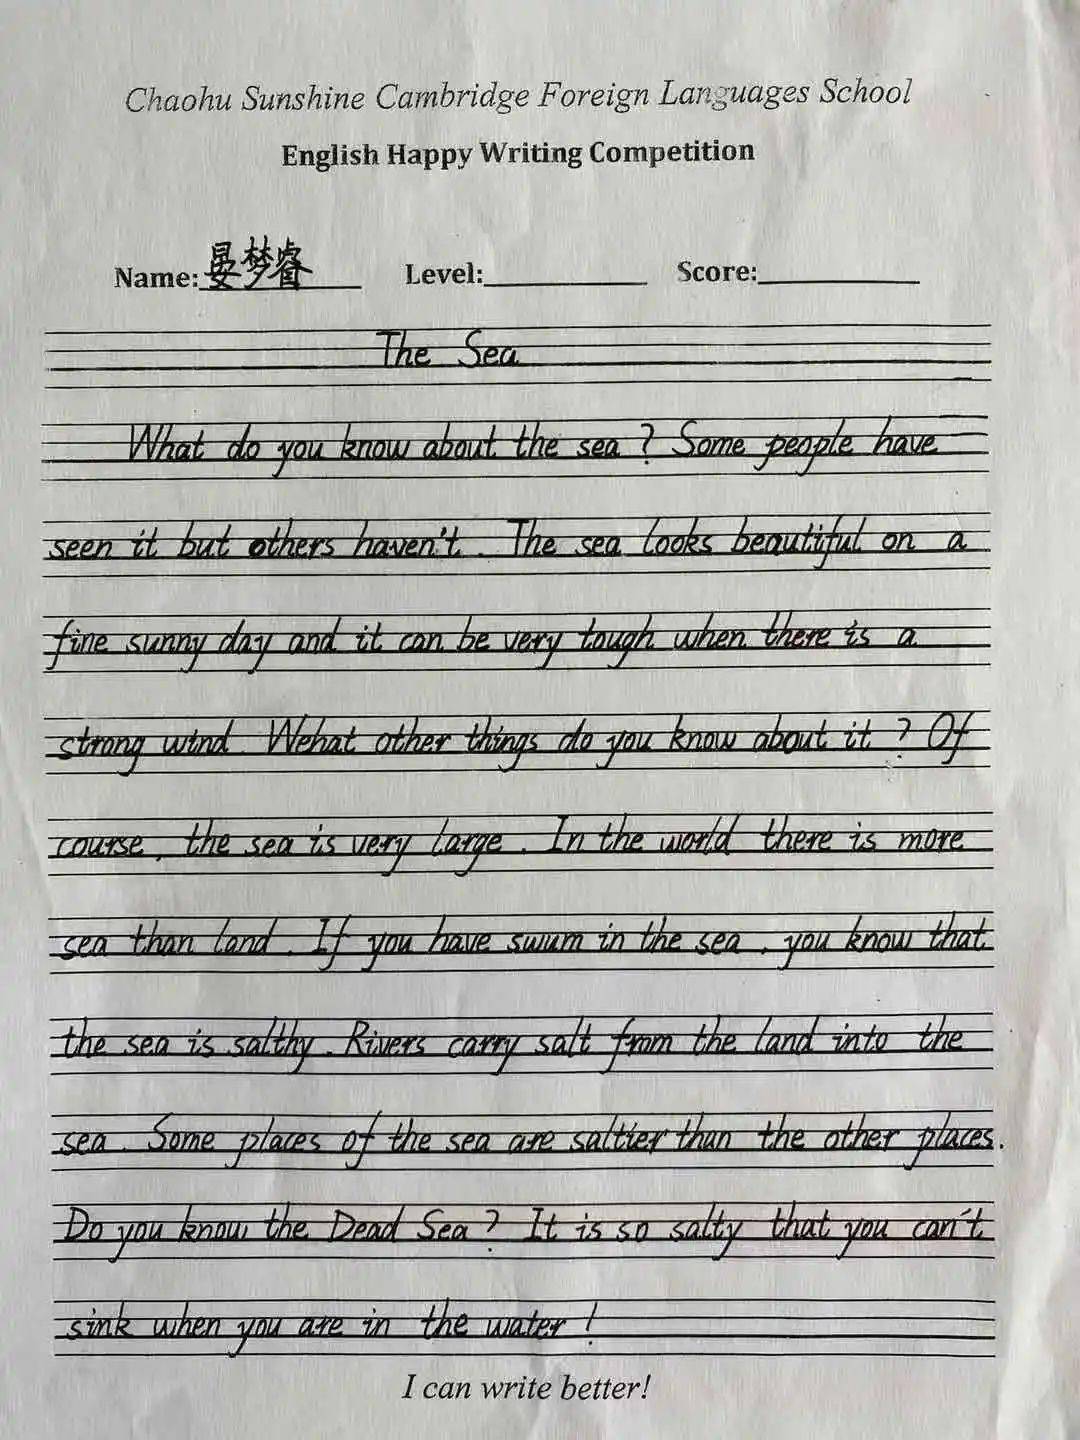 Chaohu Sunshine Cambridge Foreign Languages School
English Happy Writing Competition
Name: 晏梦睿 Level: Score:
The Sea
What do you know about the sea? Some people have
seen it but others haven't. The sea looks beautiful on a
fine sunny day and it can be very tough when there is a
strong wind. Wehat other things do you know about it? Of
course, the sea is very large. In the world there is more
sea than land. If you have swum in the sea, you know that
the sea is salthy. Rivers carry salt from the land into the
sea. Some places of the sea are saltier than the other places.
Do you know the Dead Sea? It is so salty that you can't
sink when you are in the water!
I can write better!